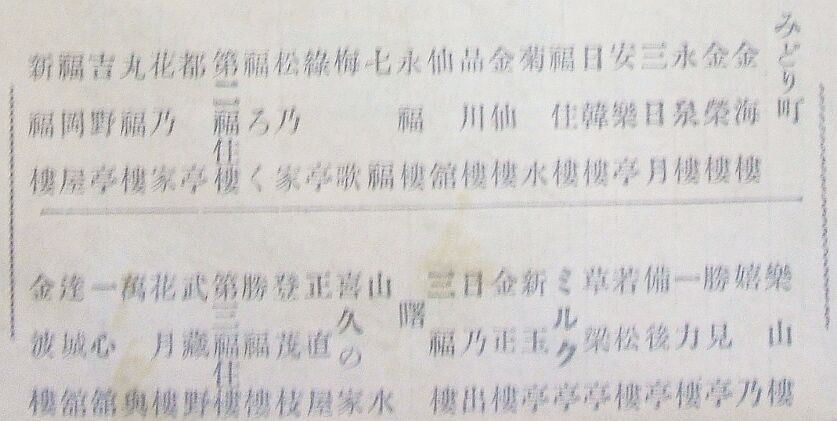 みどり町
金海樓
金榮樓
永泉樓
三日月
安樂亭
日韓樓
福住樓
菊水
金仙樓
品川樓
仙舘
永福樓
七福
梅歌
綠亭
松乃家
福ろく
第二福住樓
都亭
花乃家
丸福樓
吉野亭
福岡屋
新福樓
樂山樓
嬉乃
勝見亭
一力樓
備後亭
若松樓
草梁亭
ミルク亭
新玉亭
金正樓
日乃出
三福樓
曙
山水
喜久の家
正直屋
登茂枝
勝福樓
第三福住樓
武藏野
花月樓
萬與
一心舘
達城舘
金波樓